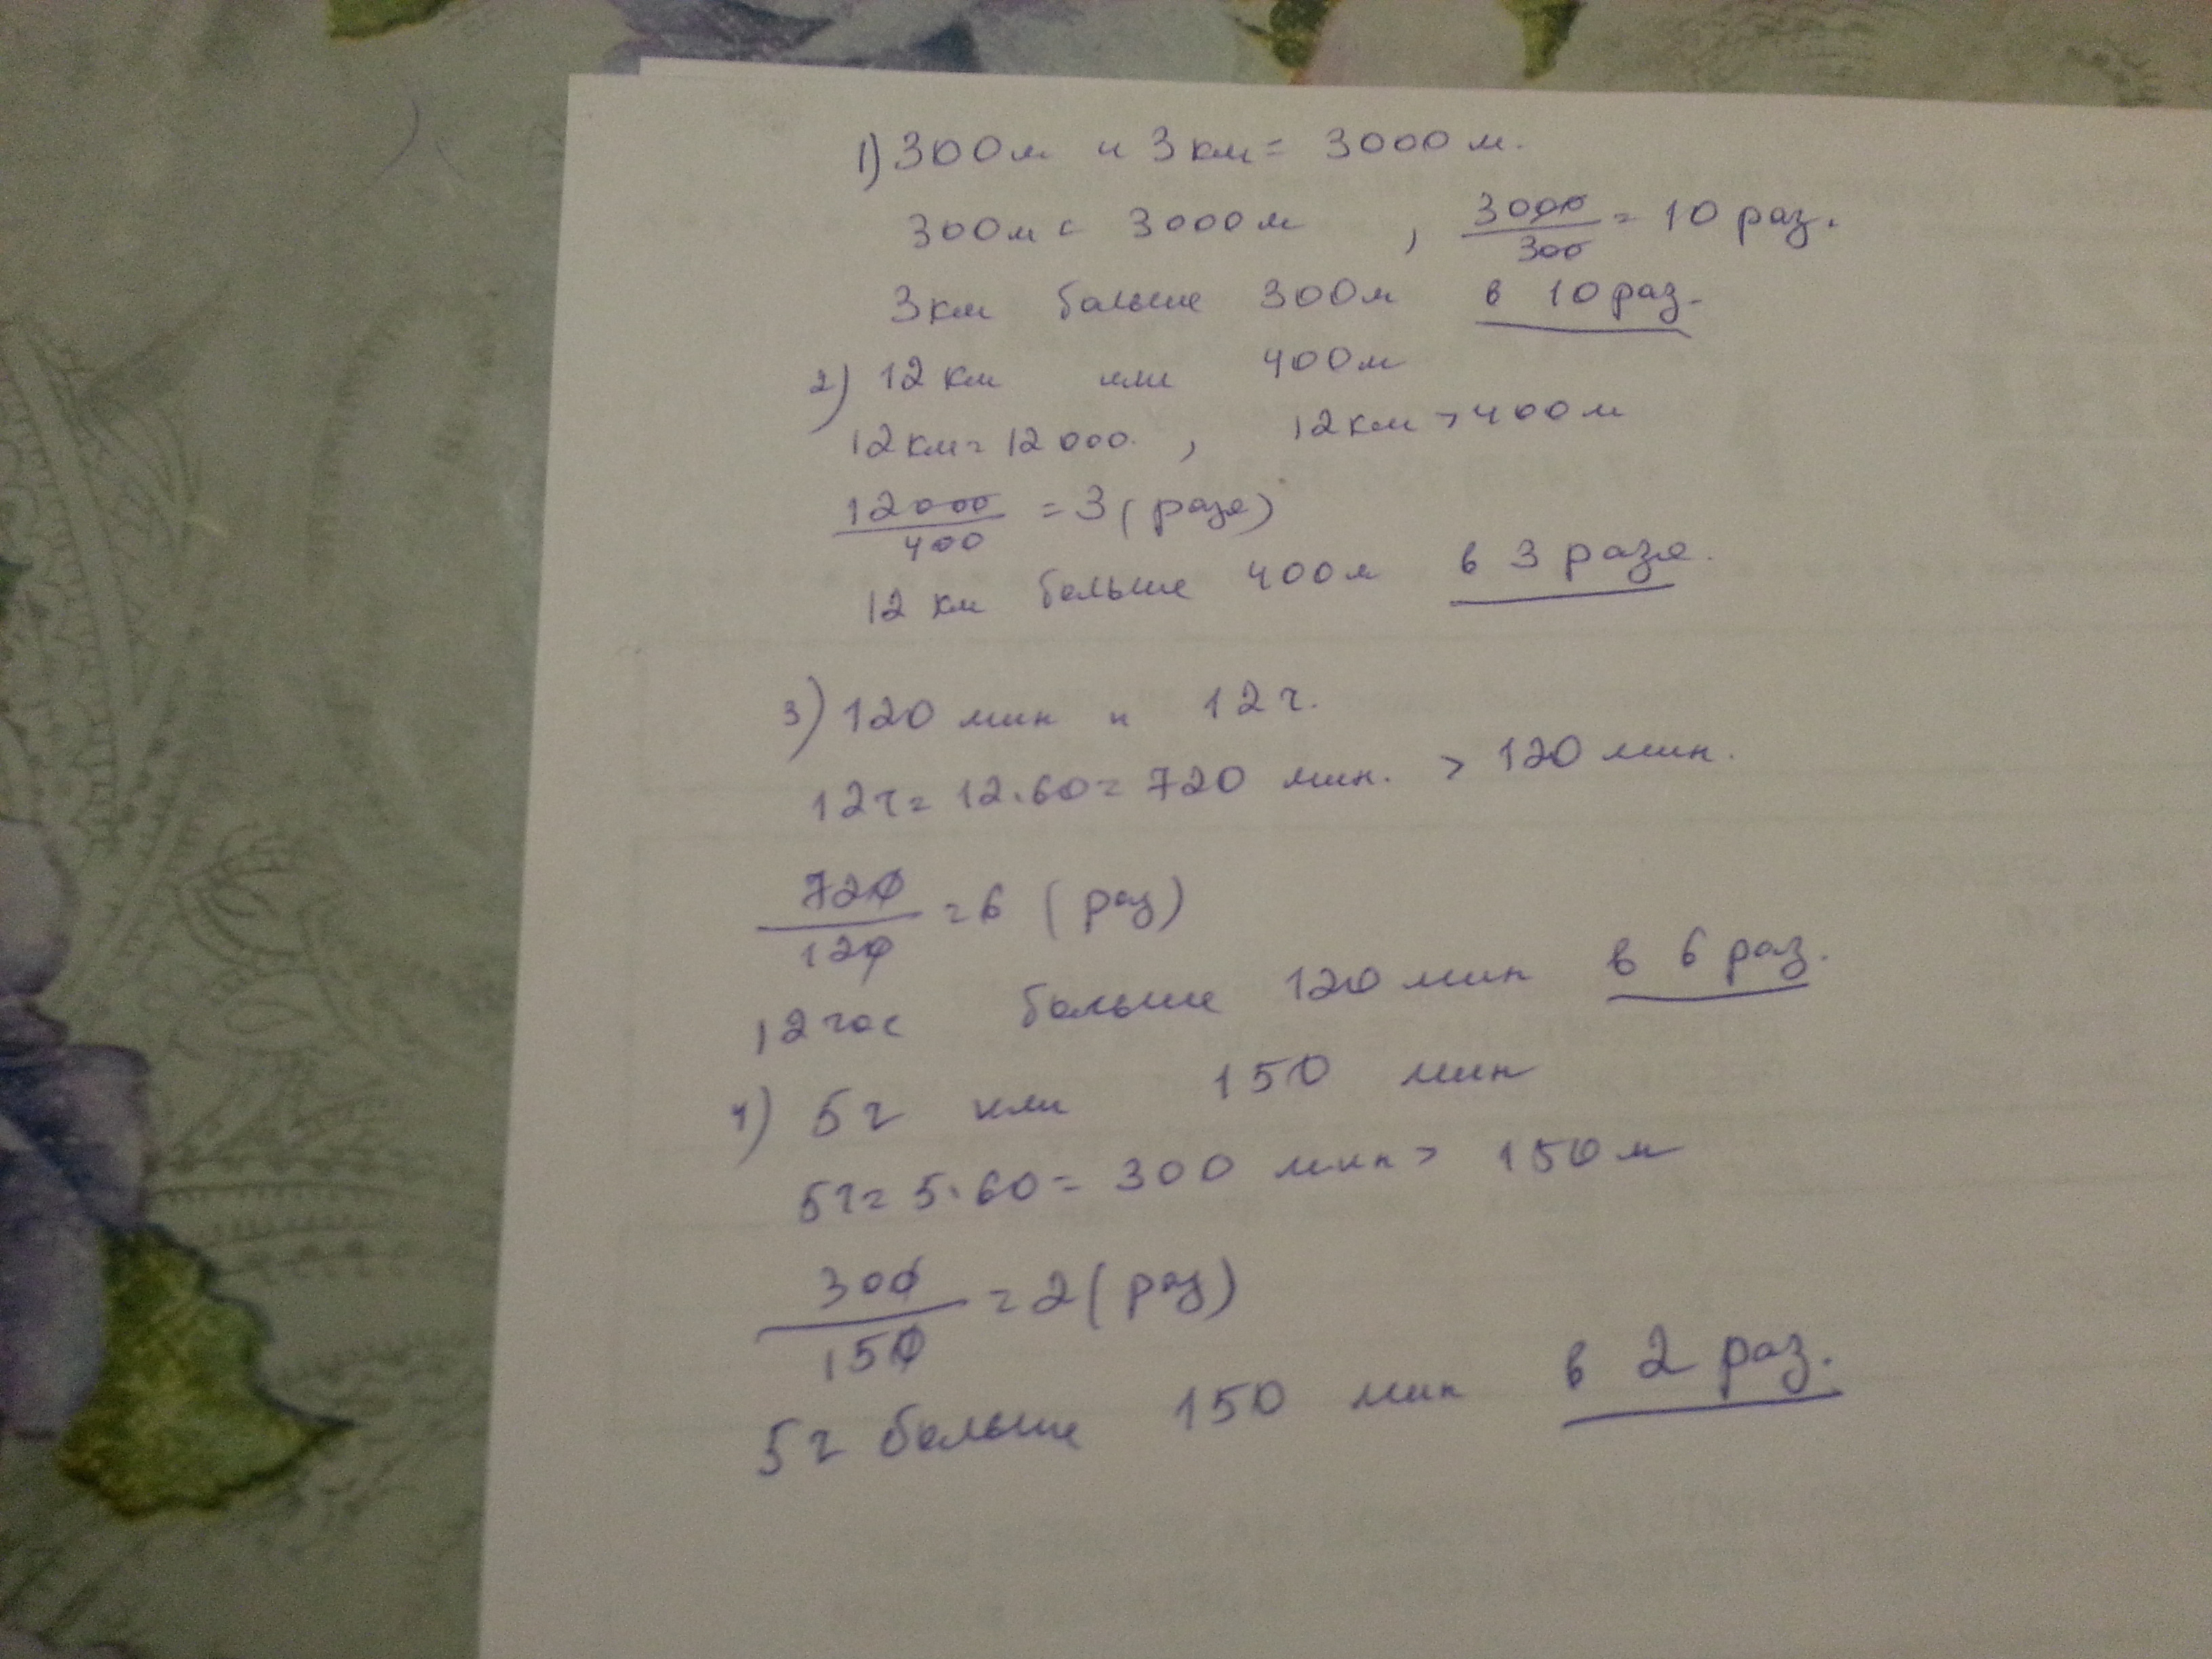 1) 300м и 3км = 3000м.
300м < 3000м , 3000/300 = 10 раз.
3км больше 300м в 10 раз.
2) 12км или 400м
12км = 12000. , 12км > 400м
12000/400 = 3 (раза)
12км больше 400м в 3 раза.
3) 120 мин и 12ч.
12ч = 12.60 = 720 мин. > 120 мин.
720/120 = 6 (раз)
12час больше 120 мин в 6 раз.
4) 5ч или 150 мин
5ч = 5.60 = 300 мин > 150м
300/150 = 2 (раз)
5ч больше 150 мин в 2 раз.